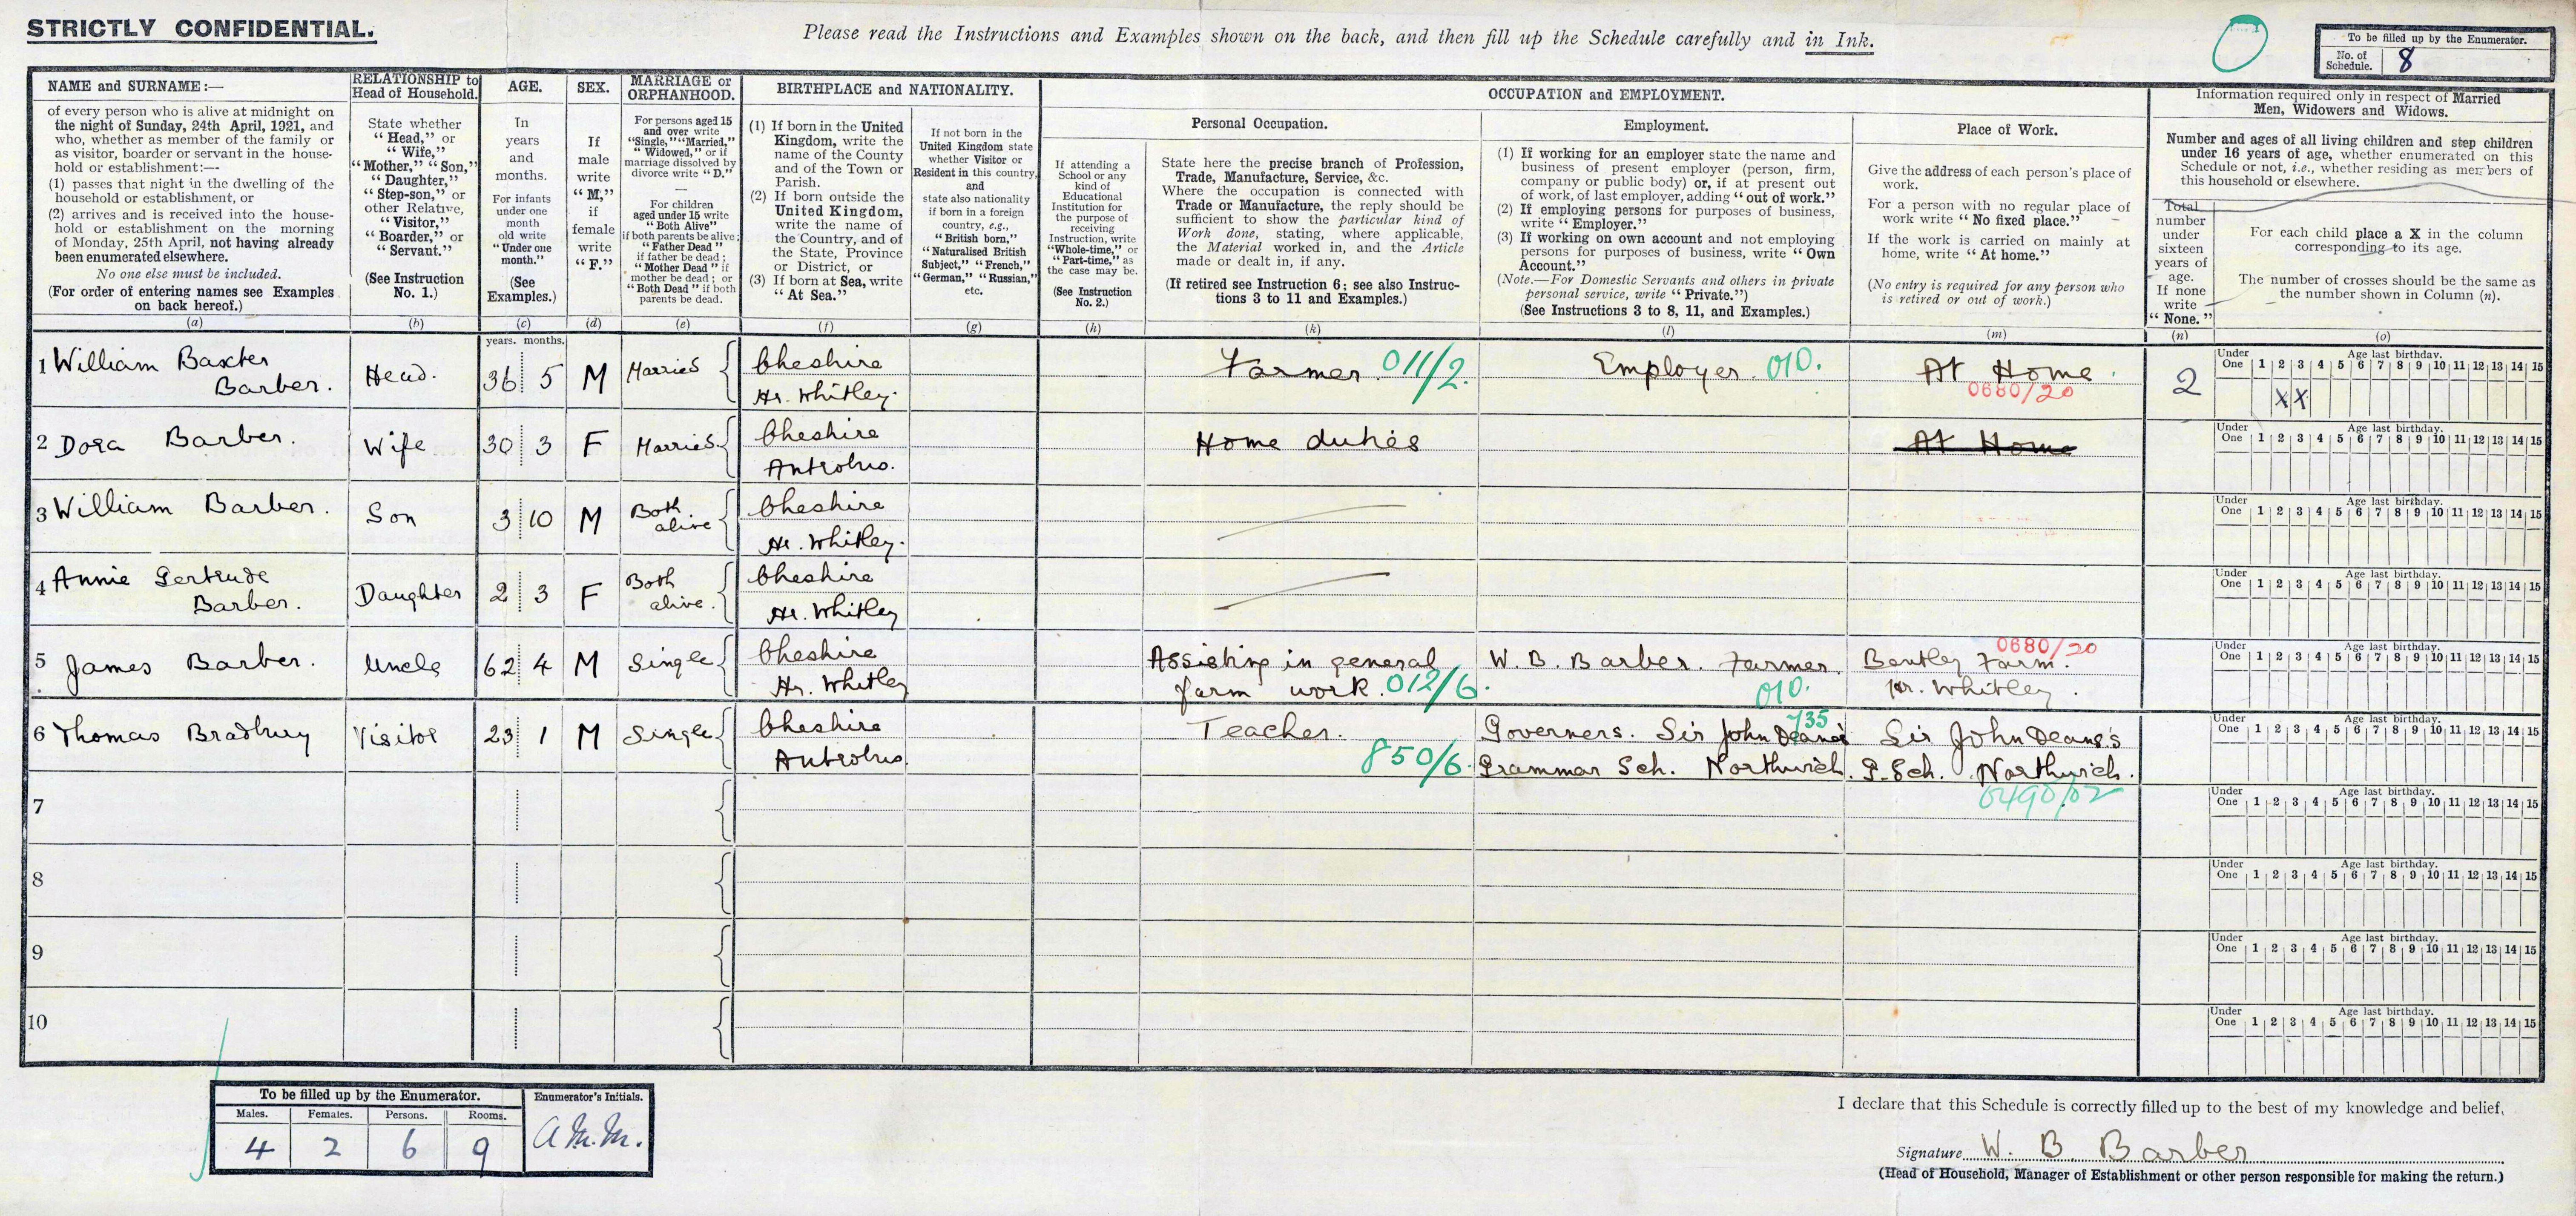 STRICTLY CONFIDENTIAL.
Please read the Instructions and Examples shown on the back, and then fill up the Schedule carefully and in Ink.
To be filled up by the Enumerator.
No. of Schedule. 8
NAME and SURNAME:—
of every person who is alive at midnight on
the night of Sunday, 24th April, 1921, and
who, whether as member of the family or
as visitor, boarder or servant in the house-
hold or establishment:—
(1) passes that night in the dwelling of the
household or establishment, or
(2) arrives and is received into the house-
hold or establishment on the morning
of Monday, 25th April, not having already
been enumerated elsewhere.
No one else must be included.
(For order of entering names see Examples
on back hereof.)
(a)
RELATIONSHIP to
Head of Household.
State whether
"Head," or
"Wife,"
"Mother," "Son,"
"Daughter,"
"Step-son," or
other Relative,
"Visitor,"
"Boarder," or
"Servant."
(See Instruction
No. 1.)
(b)
AGE.
In
years
and
months.
For infants
under one
month
old write
"Under one
month."
(See
Examples.)
(c)
SEX.
If
male
write
"M,"
if
female
write
"F."
(d)
MARRIAGE or
ORPHANHOOD.
For persons aged 15
and over write
"Single," "Married,"
"Widowed," or if
marriage dissolved by
divorce write "D."
For children
aged under 15 write
"Both Alive"
if both parents be alive;
"Father Dead"
if father be dead;
"Mother Dead" if
mother be dead; or
"Both Dead" if both
parents be dead.
(e)
BIRTHPLACE and NATIONALITY.
(1) If born in the United
Kingdom, write the
name of the County
and of the Town or
Parish.
(2) If born outside the
United Kingdom,
write the name of
the Country, and of
the State, Province
or District, or
(3) If born at Sea, write
"At Sea."
(f)
If not born in the
United Kingdom state
whether Visitor or
Resident in this country,
and
state also nationality
if born in a foreign
country, e.g.,
"British born,"
"Naturalised British
Subject," "French,"
"German," "Russian,"
etc.
(g)
OCCUPATION and EMPLOYMENT.
Personal Occupation.
If attending a
School or any
kind of
Educational
Institution for
the purpose of
receiving
Instruction, write
"Whole-time," or
"Part-time," as
the case may be.
(See Instruction
No. 2.)
(h)
State here the precise branch of Profession,
Trade, Manufacture, Service, &c.
Where the occupation is connected with
Trade or Manufacture, the reply should be
sufficient to show the particular kind of
Work done, stating, where applicable,
the Material worked in, and the Article
made or dealt in, if any.
(If retired see Instruction 6; see also Instruc-
tions 3 to 11 and Examples.)
(k)
Employment.
(1) If working for an employer state the name and
business of present employer (person, firm,
company or public body) or, if at present out
of work, of last employer, adding "out of work."
(2) If employing persons for purposes of business,
write "Employer."
(3) If working on own account and not employing
persons for purposes of business, write "Own
Account."
(Note.—For Domestic Servants and others in private
personal service, write "Private.")
(See Instructions 3 to 8, 11, and Examples.)
(l)
Place of Work.
Give the address of each person's place of
work.
For a person with no regular place of
work write "No fixed place."
If the work is carried on mainly at
home, write "At home."
(No entry is required for any person who
is retired or out of work.)
(m)
Information required only in respect of Married
Men, Widowers and Widows.
Number and ages of all living children and step children
under 16 years of age, whether enumerated on this
Schedule or not, i.e., whether residing as members of
this household or elsewhere.
Total
number
under
sixteen
years of
age.
If none
write
"None."
(n)
For each child place a X in the column
corresponding to its age.
The number of crosses should be the same as
the number shown in Column (n).
(o)
years. months.
1 William Baxter Barber. Head. 36 5 M Married Cheshire Hr. Whitley. Farmer 011/2. Employer 010. At Home 0680/20 2
Under One Age last birthday. 1 2 3 4 5 6 7 8 9 10 11 12 13 14 15
X X
2 Dora Barber. Wife 30 3 F Married Cheshire Antrobus. Home duties At Home
Under One Age last birthday. 1 2 3 4 5 6 7 8 9 10 11 12 13 14 15
3 William Barber. Son 3 10 M Both alive Cheshire Hr. Whitley.
Under One Age last birthday. 1 2 3 4 5 6 7 8 9 10 11 12 13 14 15
4 Annie Gertrude Barber. Daughter 2 3 F Both alive. Cheshire Hr. Whitley
Under One Age last birthday. 1 2 3 4 5 6 7 8 9 10 11 12 13 14 15
5 James Barber. Uncle 62 4 M Single Cheshire Hr. Whitley Assisting in general farm work. 012/6. W. B. Barber. Farmer. 010. Bentley Farm. Hr. Whitley. 0680/20
Under One Age last birthday. 1 2 3 4 5 6 7 8 9 10 11 12 13 14 15
6 Thomas Bradbury Visitor 23 1 M Single Cheshire Antrobus. Teacher. 850/6. Governers. Sir John Deane's Grammar Sch. Northwich. 735 Sir John Deane's G. Sch. Northwich. 0490/02
Under One Age last birthday. 1 2 3 4 5 6 7 8 9 10 11 12 13 14 15
7
Under One Age last birthday. 1 2 3 4 5 6 7 8 9 10 11 12 13 14 15
8
Under One Age last birthday. 1 2 3 4 5 6 7 8 9 10 11 12 13 14 15
9
Under One Age last birthday. 1 2 3 4 5 6 7 8 9 10 11 12 13 14 15
10
Under One Age last birthday. 1 2 3 4 5 6 7 8 9 10 11 12 13 14 15
To be filled up by the Enumerator.
Males. Females. Persons. Rooms.
4 2 6 9
Enumerator's Initials.
A.M.M.
I declare that this Schedule is correctly filled up to the best of my knowledge and belief,
Signature W. B. Barber
(Head of Household, Manager of Establishment or other person responsible for making the return.)